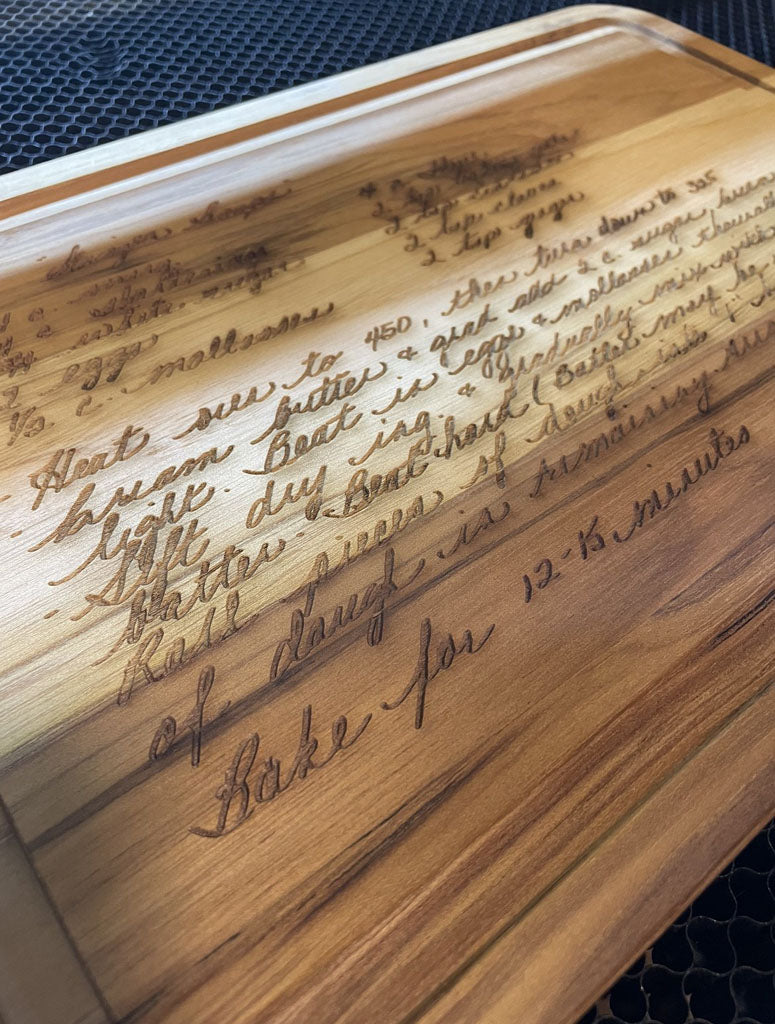 Ginger Snaps
4 c. flour
2 tsp cinnamon
2 tsp cloves
2 tsp ginger
c. shortening
c. white sugar
2 eggs
1/2 c. mollasses
- Heat oven to 450, then turn down to 325
- kream butter & grad add 2 c. sugar
light. Beat in eggs & mollasses
- Sift dry ing. & gradually mix
batter. Beat hard (Batter may be
Roll pieces of dough into 1"
of dough in remaining
Bake for 12-15 minutes